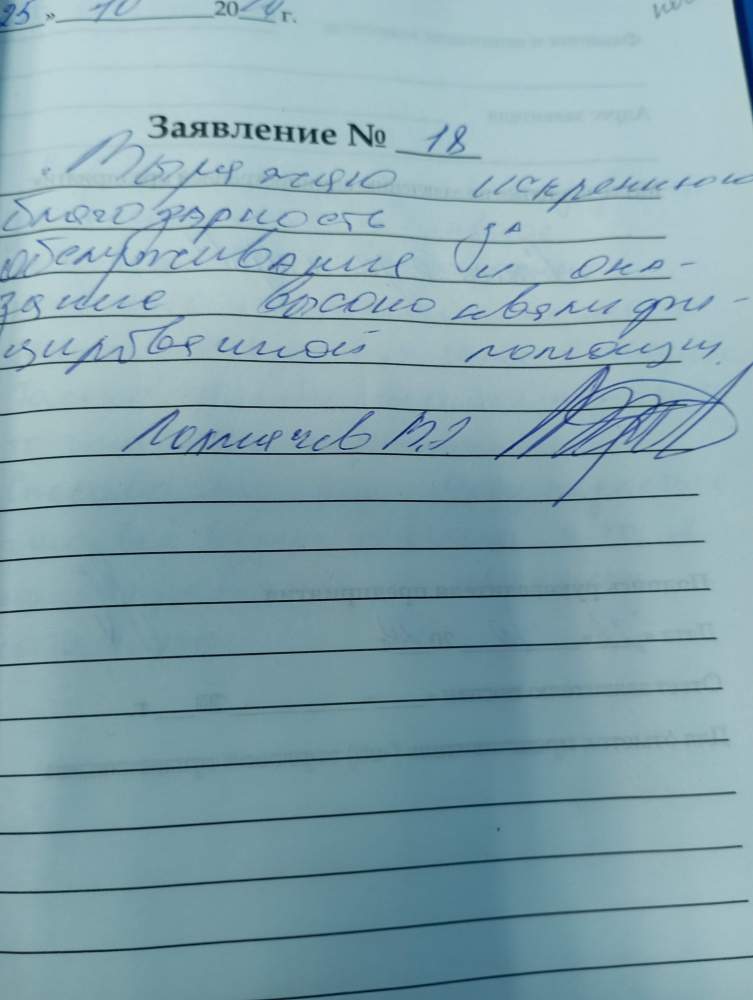 25 » 10 20 г.
Заявление № 18
Выражаю искреннюю
благодарность за
обслуживание и ока-
зание высококвалифи-
цированной помощи.